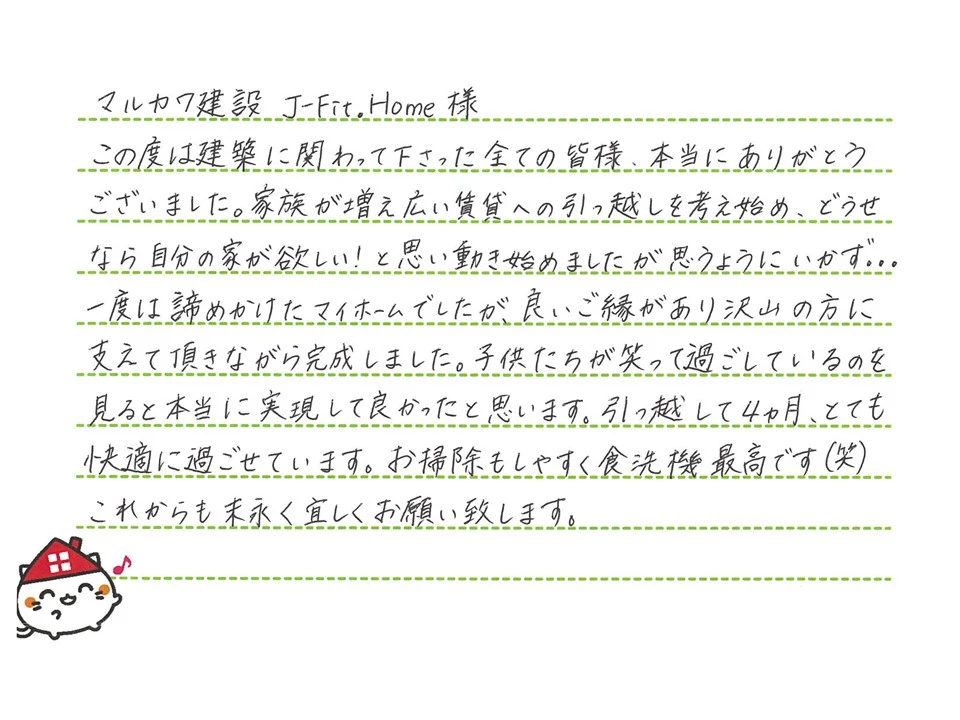 マルカワ建設 J-Fit.Home 様
この度は建築に関わって下さった全ての皆様、本当にありがとう
ございました。家族が増え広い賃貸への引っ越しを考え始め、どうせ
なら自分の家が欲しい!と思い動き始めましたが思うようにいかず...
一度は諦めかけたマイホームでしたが、良いご縁があり沢山の方に
支えて頂きながら完成しました。子供たちが笑って過ごしているのを
見ると本当に実現して良かったと思います。引っ越して4ヵ月、とても
快適に過ごせています。お掃除もしやすく食洗機最高です(笑)
これからも末永く宜しくお願い致します。